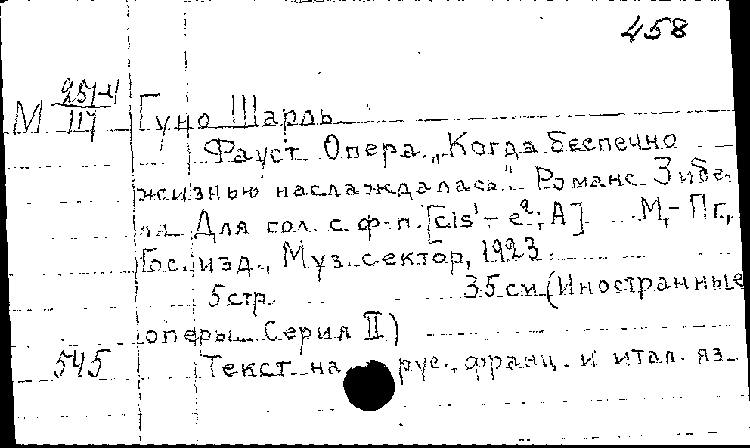 458
М 251-4/117 Гуно Шарль
Фауст Опера. „Когда беспечно
жизнью наслаждалась". Романс Зибе-
ля Для гол. с ф-п. [cis¹ - e²; A] М.-Пг.,
Гос. изд., Муз. сектор, 1923.
5 стр. 35 см (Иностранные
оперы Серия II)
545 Текст на рус., франц. и итал. яз.